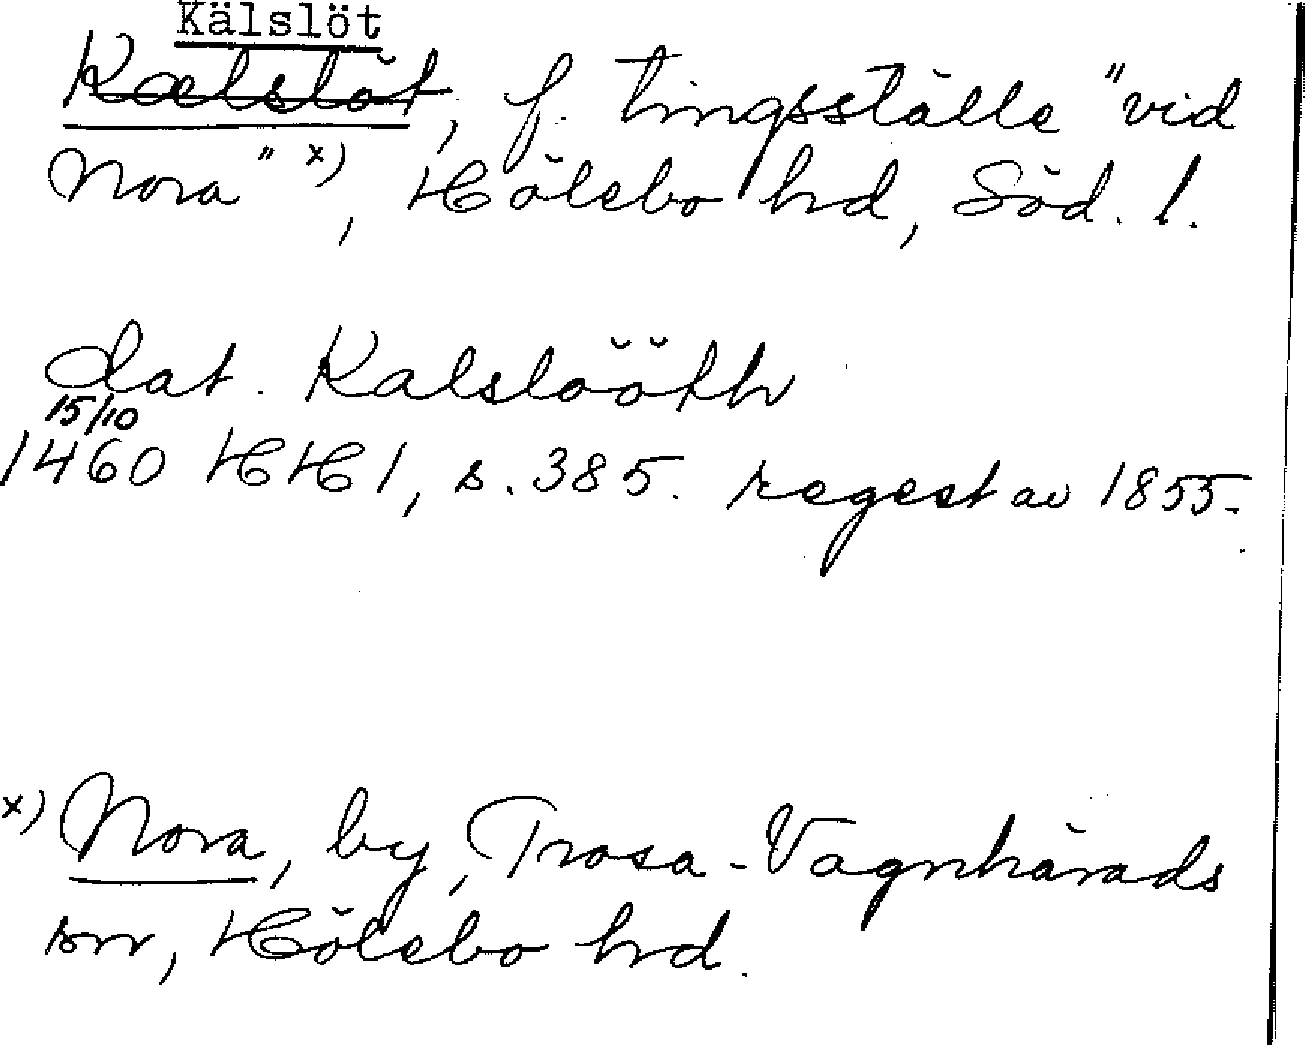 Kälslöt
Kælslöt, f. tingsställe "vid
Nora" x), Hölebo hrd, Söd. l.
dat. Kalslööth
15/10
1460 HH 1, s. 385. regest av 1855.
x) Nora, by, Trosa-Vagnhärads
snr, Hölebo hrd.